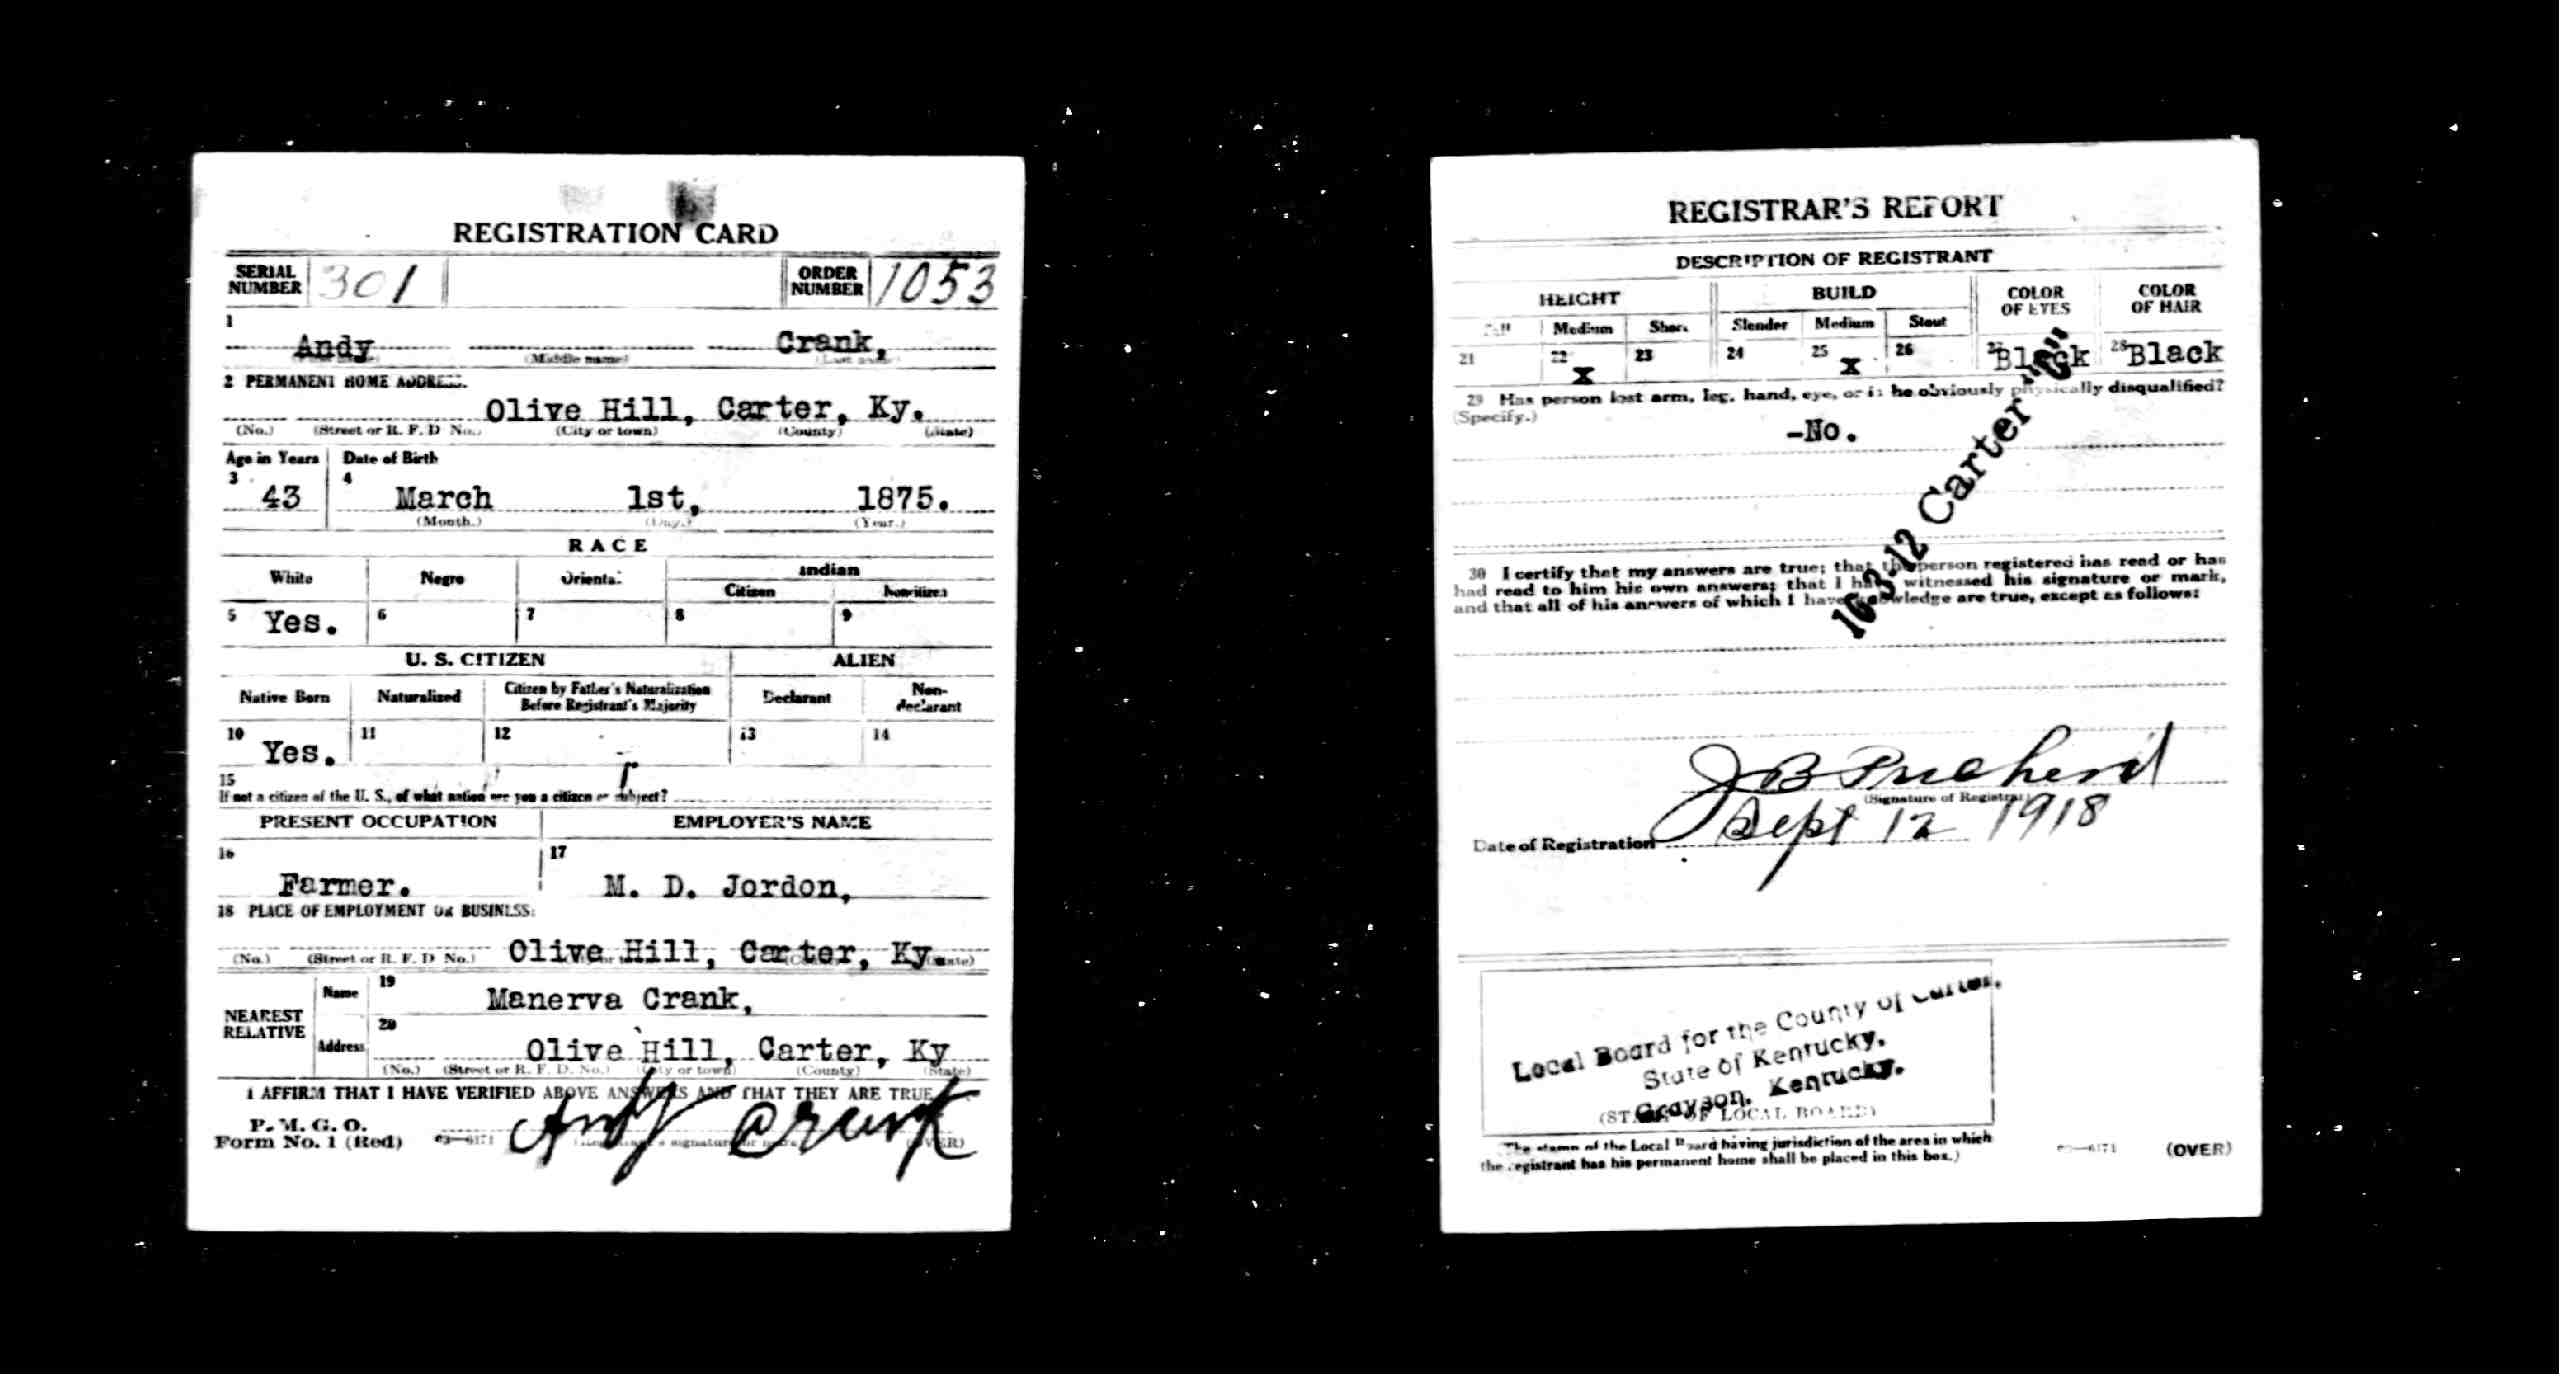 REGISTRATION CARD
SERIAL NUMBER 301 ORDER NUMBER 1053
1
Andy Crank,
(Middle name) (Last name)
2 PERMANENT HOME ADDRESS.
Olive Hill, Carter, Ky.
(No.) (Street or R. F. D No.) (City or town) (County) (State)
Age in Years Date of Birth
3 43 4 March 1st, 1875.
(Month.) (Day.) (Year.)
RACE
White Negro Oriental Indian
Citizen Noncitizen
5 Yes. 6 7 8 9
U. S. CITIZEN ALIEN
Native Born Naturalized Citizen by Father's Naturalization Before Registrant's Majority Declarant Non-declarant
10 Yes. 11 12 13 14
15
If not a citizen of the U. S., of what nation are you a citizen or subject?
PRESENT OCCUPATION EMPLOYER'S NAME
16 17
Farmer. M. D. Jordon,
18 PLACE OF EMPLOYMENT OR BUSINESS:
Olive Hill, Carter, Ky
(No.) (Street or R. F. D No.) (County) (State)
NEAREST RELATIVE Name 19 Manerva Crank,
Address 20 Olive Hill, Carter, Ky
(No.) (Street or R. F. D. No.) (City or town) (County) (State)
I AFFIRM THAT I HAVE VERIFIED ABOVE ANSWERS AND THAT THEY ARE TRUE
P. M. G. O.
Form No. 1 (Red) 03—6171 Andy Crank (OVER)
REGISTRAR'S REPORT
DESCRIPTION OF REGISTRANT
HEIGHT BUILD COLOR OF EYES COLOR OF HAIR
Tall Medium Short Slender Medium Stout
21 22 X 23 24 25 X 26 27 Black 28 Black
29 Has person lost arm, leg, hand, eye, or is he obviously physically disqualified?
(Specify.)
-No.
16-3-12 Carter "C"
30 I certify that my answers are true; that the person registered has read or has
had read to him his own answers; that I have witnessed his signature or mark,
and that all of his answers of which I have knowledge are true, except as follows:
J B
(Signature of Registrar)
Date of Registration Sept 12 1918
Local Board for the County of Carter,
State of Kentucky,
Grayson, Kentucky.
(STAMP OF LOCAL BOARD)
(The stamp of the Local Board having jurisdiction of the area in which
the registrant has his permanent home shall be placed in this box.)
03—6171 (OVER)